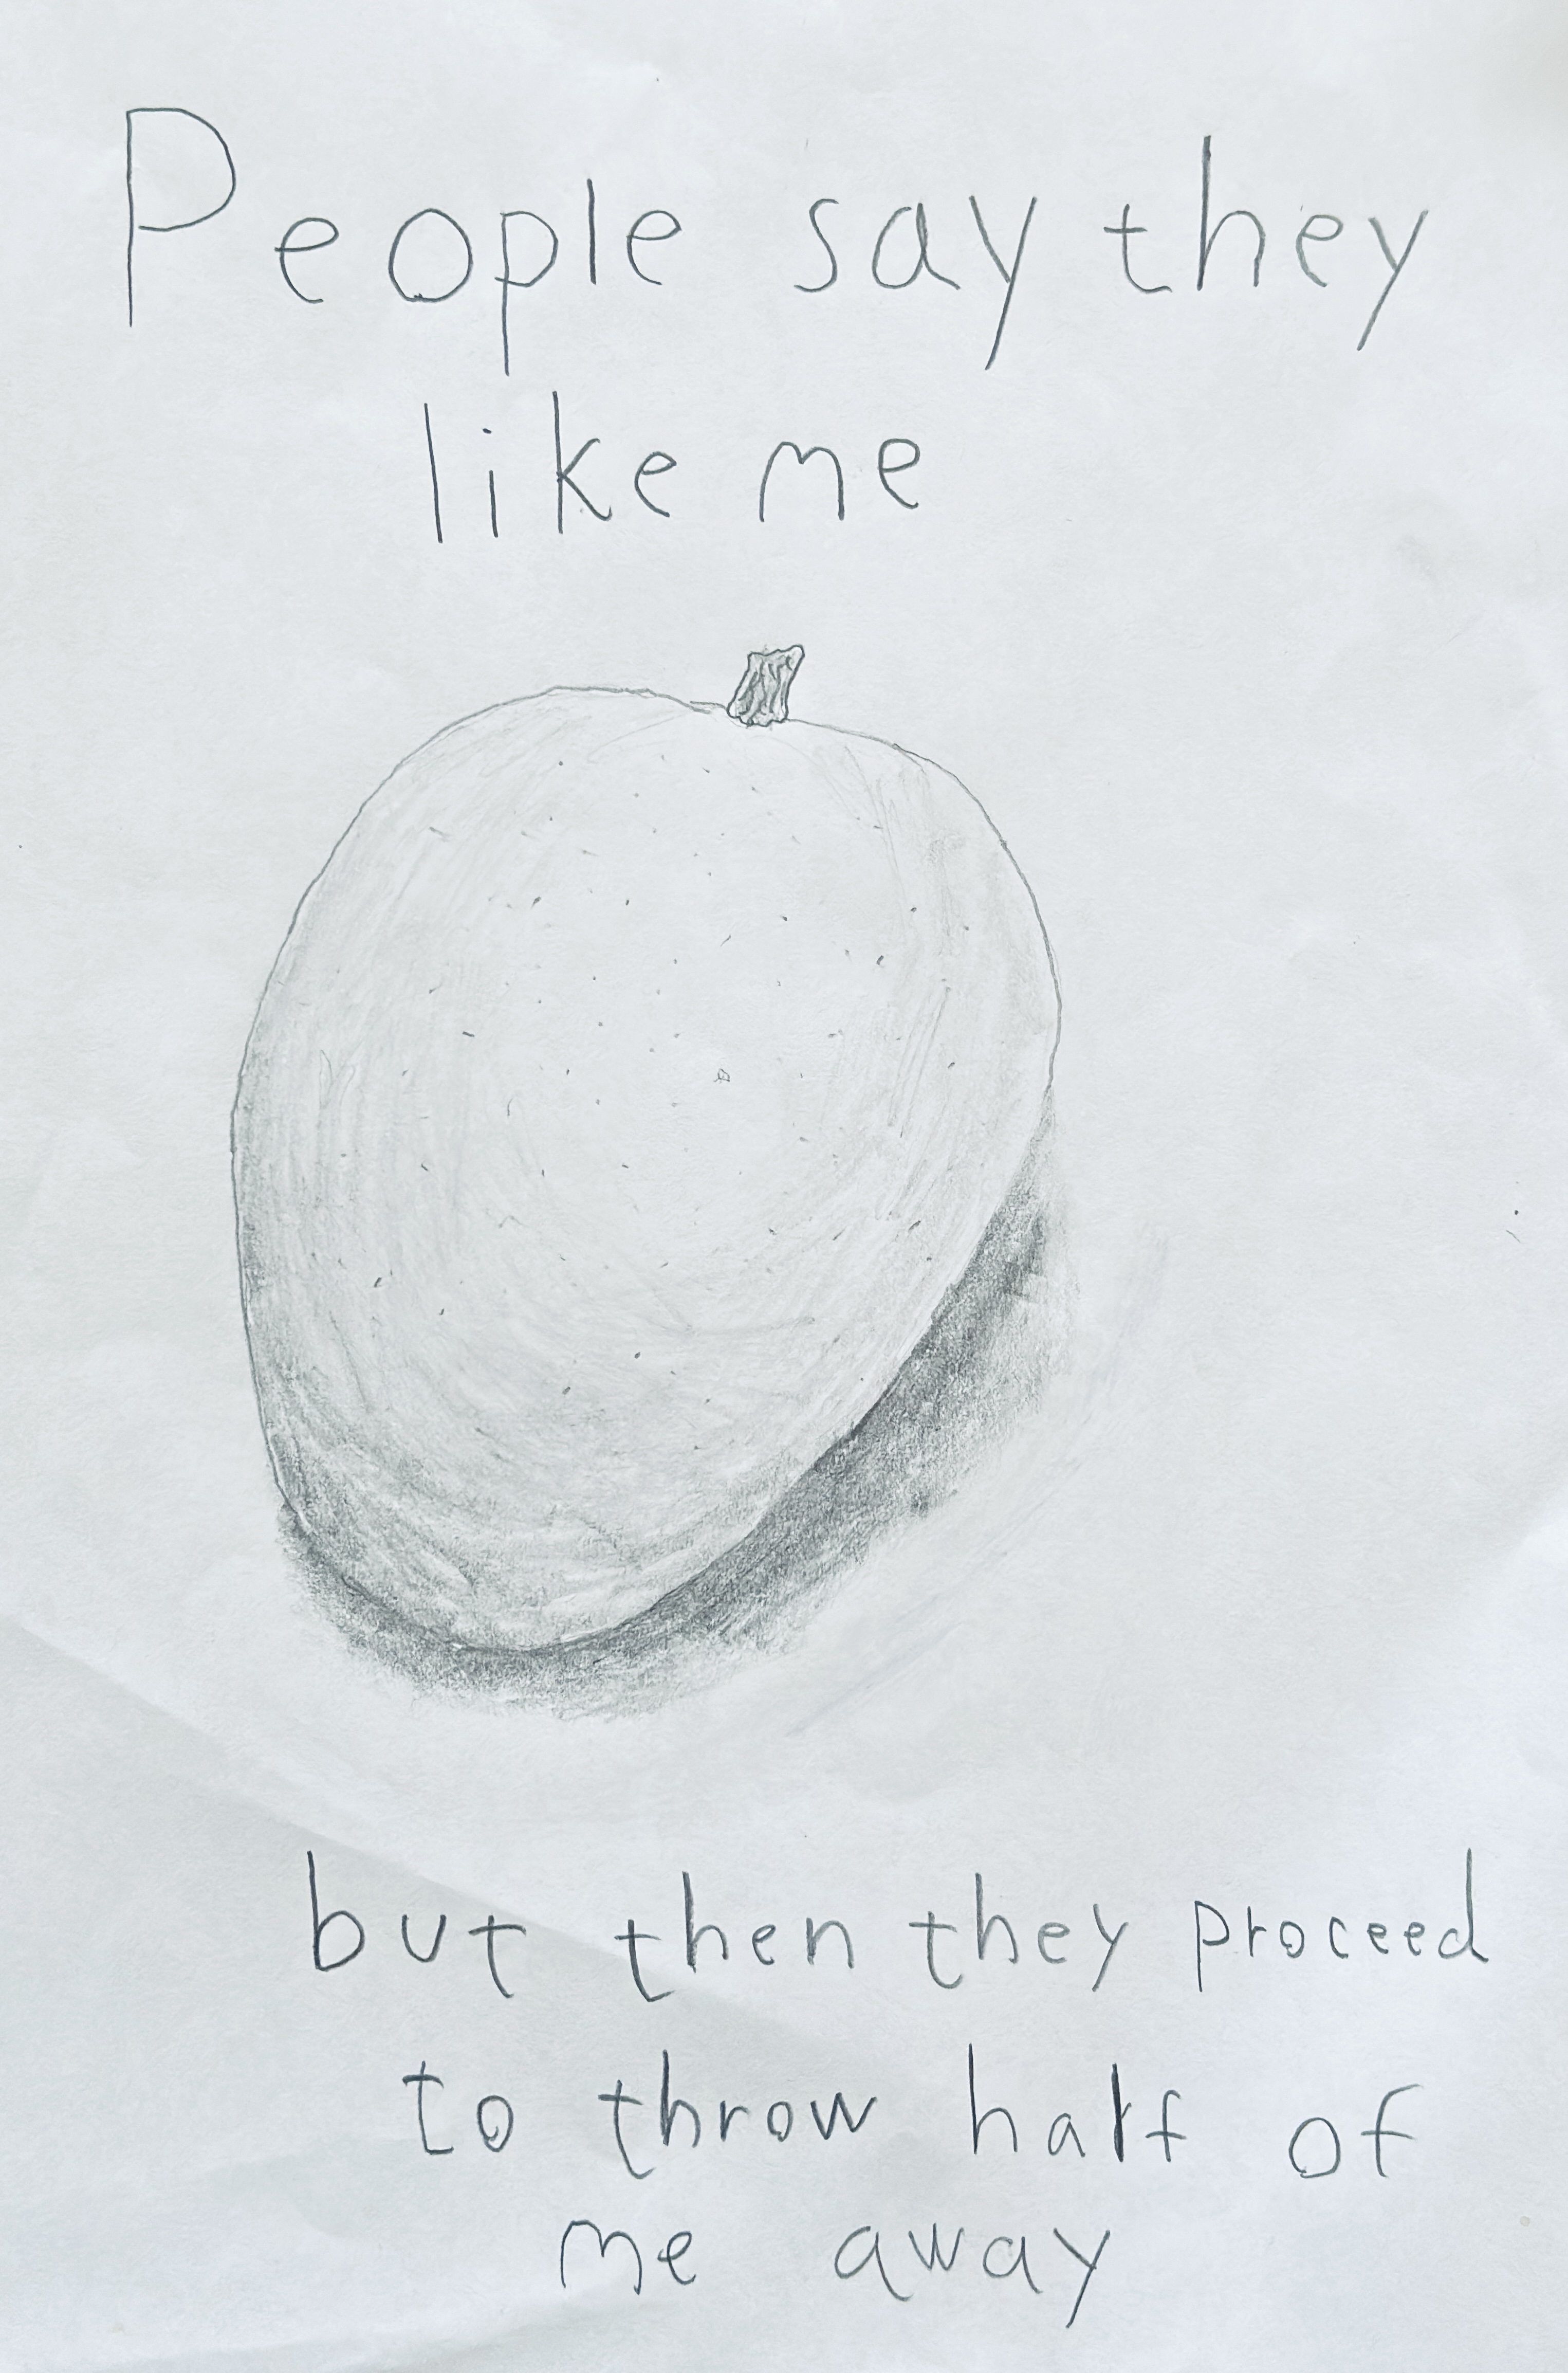 People say they
like me
but then they proceed
to throw half of
me away